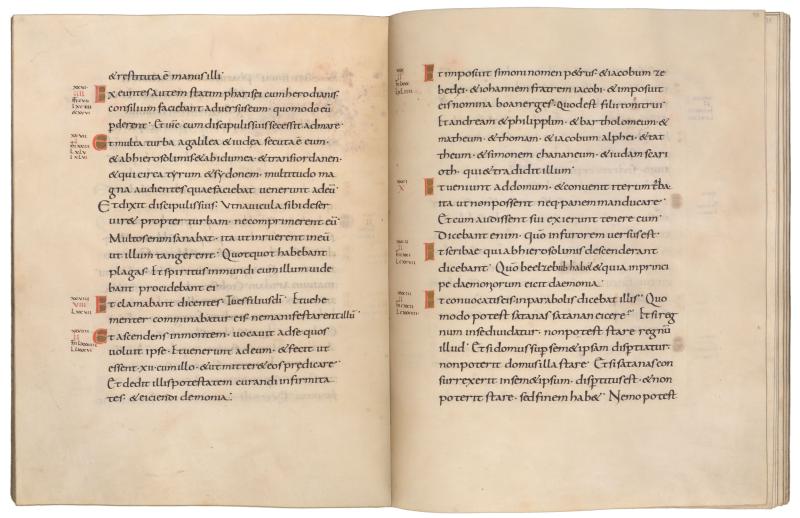 & restituta ē manus illi
Exeuntes autem statim pharisei cum herodianis
consilium faciebant adversus eum · quomodo eū
perderent · Et iħc cum discipulis suis secessit ad mare
Et multa turba a galilea & iudea secuta ē eum ·
& ab hierosolimis & ab idumea · & transiordanen ·
& qui circa tyrum & sydonem · multitudo ma
gna audientes quae faciebat venerunt ad eū
Et dixit discipulis suis · Ut navicula sibi deser
vir& propter turbam · ne comprimerent eū
Multos enim sanabat · ita ut inruerent in eū
ut illum tangerent · Quotquot habebant
plagas · Et spiritus inmundi cum illum vide
bant procidebant ei
Et clamabant dicentes · Tu es filius dī · Et vehe
menter comminabatur eis ne manifestarent illū
Et ascendens in montem · vocavit ad se quos
voluit ipse · Et venerunt ad eum · & fecit ut
essent xii cum illo · & ut mitter& eos praedicare
Et dedit illis potestatem curandi infirmita
tes · & eiciendi demonia ·
Et imposuit simoni nomen p&rus · & iacobum ze
bedei · & iohannem fratrem iacobi · & imposuit
eis nomina boanerges · quod est filii tonitrui
Et andream & philippum · & bartholomeum · &
matheum · & thomam · & iacobum alphei · & tat
theum · & simonem chananeum · & iudam scari
oth · qui & tradidit illum ·
Et veniunt ad domum · & convenit iterum turba
ita ut non possent neq · panem manducare
Et cum audissent sui exierunt tenere eum
Dicebant enim · quō in furorem versus est
Et scribae qui ab hierosolimis descenderant
dicebant · Quō beelzebub hab& & quia in princi
pe daemoniorum eicit daemonia ·
Et convocatis eis in parabolis dicebat illis · Quo
modo potest satanas satanan eicere · Et si reg
num in se dividatur · non potest stare regnū
illud · Et si domus sup sem&ipsam disptiatur ·
non poterit domus illa stare · Et si satanas con
surrexerit in sem&ipsum · disptitus est · & non
poterit stare · sed finem hab& · Nemo potest